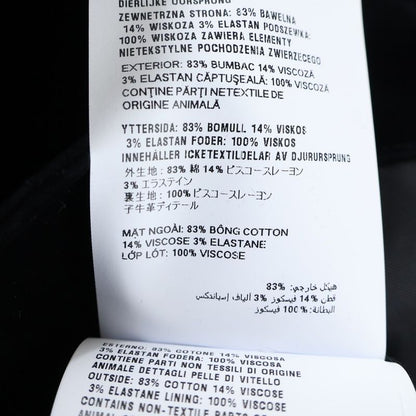 DIERLIJKE OORSPRONG
ZEWNĘTRZNA STRONA: 83% BAWEŁNA
14% WISKOZA 3% ELASTAN PODSZEWKA:
100% WISKOZA ZAWIERA ELEMENTY
NIETEKSTYLNE POCHODZENIA ZWIERZĘCEGO
EXTERIOR: 83% BUMBAC 14% VISCOZĂ
3% ELASTAN CĂPTUŞEALĂ: 100% VISCOZĂ
CONŢINE PĂRŢI NETEXTILE DE
ORIGINE ANIMALĂ
YTTERSIDA: 83% BOMULL 14% VISKOS
3% ELASTAN FODER: 100% VISKOS
INNEHÅLLER ICKETEXTILDELAR AV DJURURSPRUNG
外生地: 83% 綿 14% ビスコースレーヨン
3% エラステイン
裏生地: 100% ビスコースレーヨン
子牛革ディテール
MẶT NGOÀI: 83% BÔNG COTTON
14% VISCOSE 3% ELASTANE
LỚP LÓT: 100% VISCOSE
هيكل خارجي: 83%
قطن 14% فيسكوز 3% ألياف إسباندكس
البطانة: 100% فيسكوز
ESTERNO: 83% COTONE 14% VISCOSA
3% ELASTAN FODERA: 100% VISCOSA
CONTIENE PARTI NON TESSILI DI ORIGINE
ANIMALE DETTAGLI PELLE DI VITELLO
OUTSIDE: 83% COTTON 14% VISCOSE
3% ELASTANE LINING: 100% VISCOSE
CONTAINS NON-TEXTILE PARTS OF